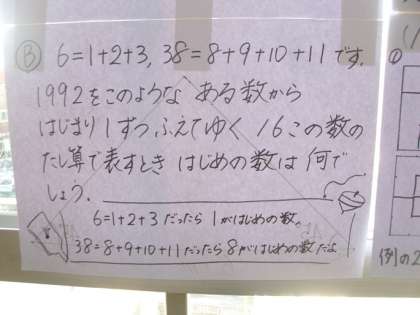 Ⓑ 6=1+2+3, 38=8+9+10+11です.
1992をこのような ある数から
はじまり1ずつふえてゆく 16この数の
たし算で表すとき はじめの数は 何で
しょう.
6=1+2+3 だったら 1がはじめの数。
38=8+9+10+11だったら8がはじめの数だよ
①
例の2